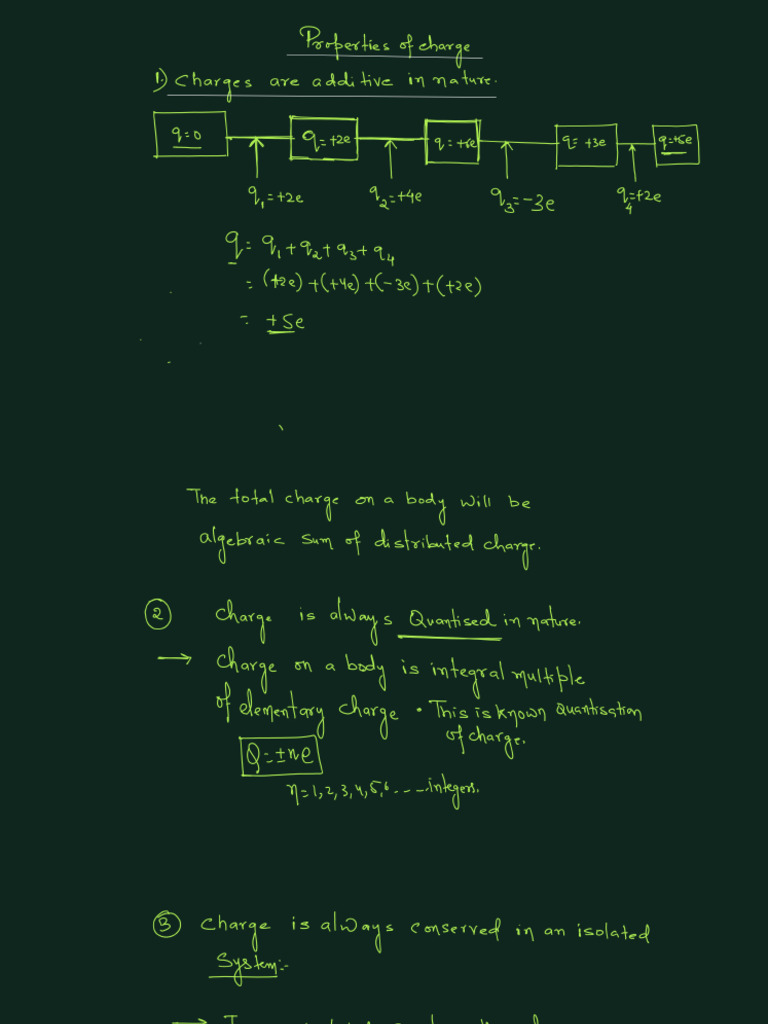 Properties of charge
1.) Charges are additive in nature.
q=0 q=+2e q=+6e q=+3e q=+5e
q₁=+2e q₂=+4e q₃=-3e q₄=+2e
q = q₁+q₂+q₃+q₄
= (+2e)+(+4e)+(-3e)+(+2e)
= +5e
The total charge on a body will be
algebraic sum of distributed charge.
② Charge is always Quantised in nature.
→ Charge on a body is integral multiple
of elementary charge • This is known Quantisation
of charge.
Q=±ne
n=1,2,3,4,5,6.... integers.
③ Charge is always conserved in an isolated
System:-